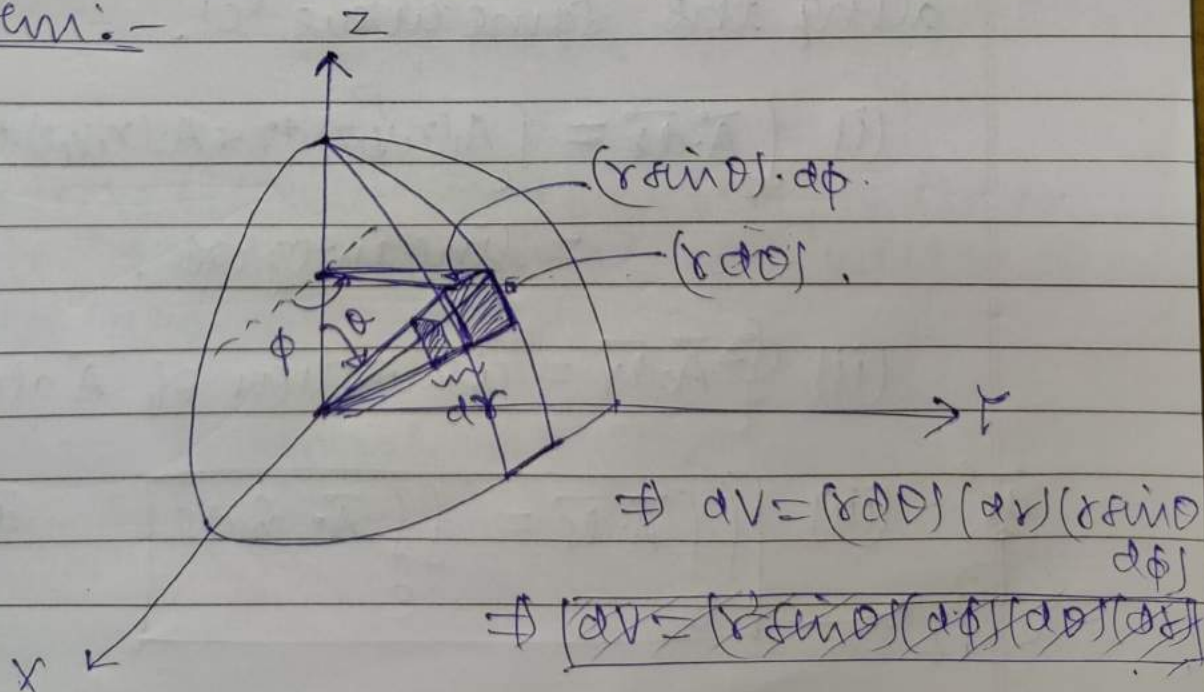 em:-
Z
(r sinθ).dφ.
(r dθ).
φ
θ
dr
Y
X
⇒ dV = (rdθ) (dr) (r sinθ
dφ)
⇒ dV = (r² sinθ) (dφ) (dθ) (dr)